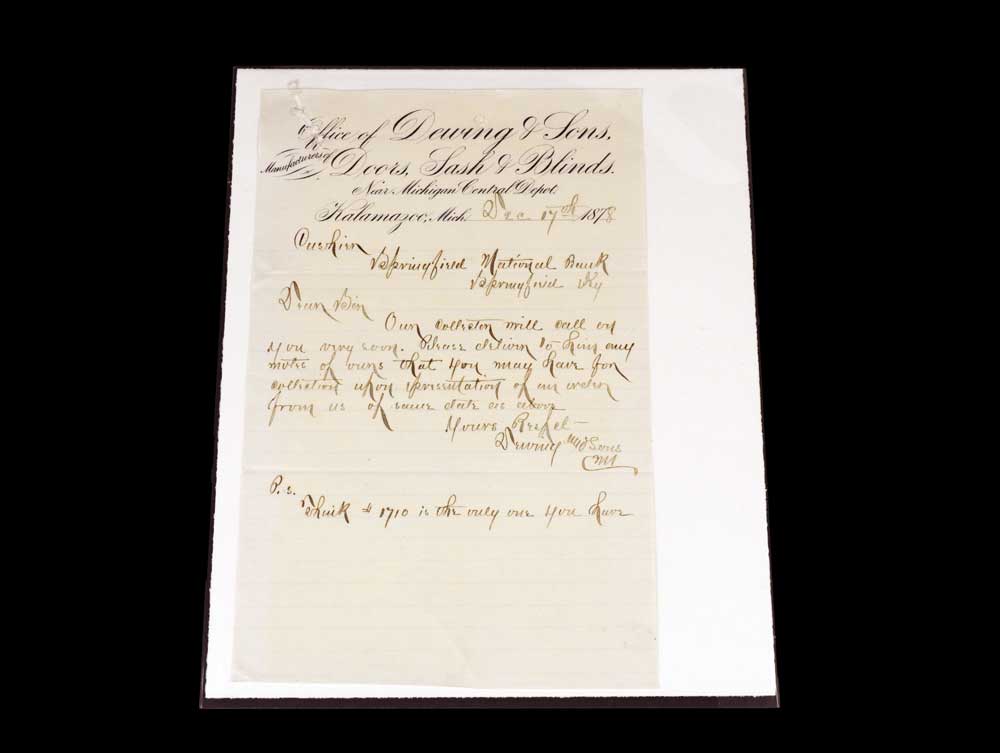 Office of Dewing & Sons.
Manufacturers of Doors, Sash & Blinds.
Near Michigan Central Depot,
Kalamazoo, Mich. Dec. 17th 1878
Cashier
Springfield National Bank
Springfield Ky
Dear Sir
Our collector will call on
you very soon. Please deliver to him any
notes of ours that you may have for
collection upon presentation of an order
from us of same date as above
Yours Respct
Dewing & Sons
P.S.
Think # 1710 is the only one you have